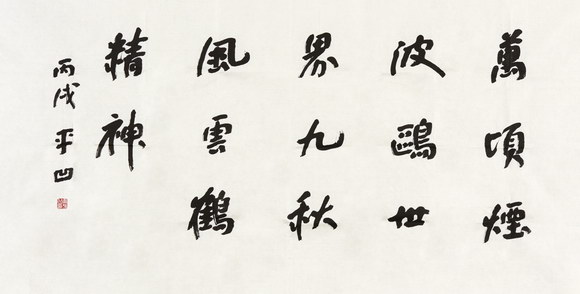 萬頃煙
波鷗世
界九秋
風雲鶴
精神
丙戌 平凹